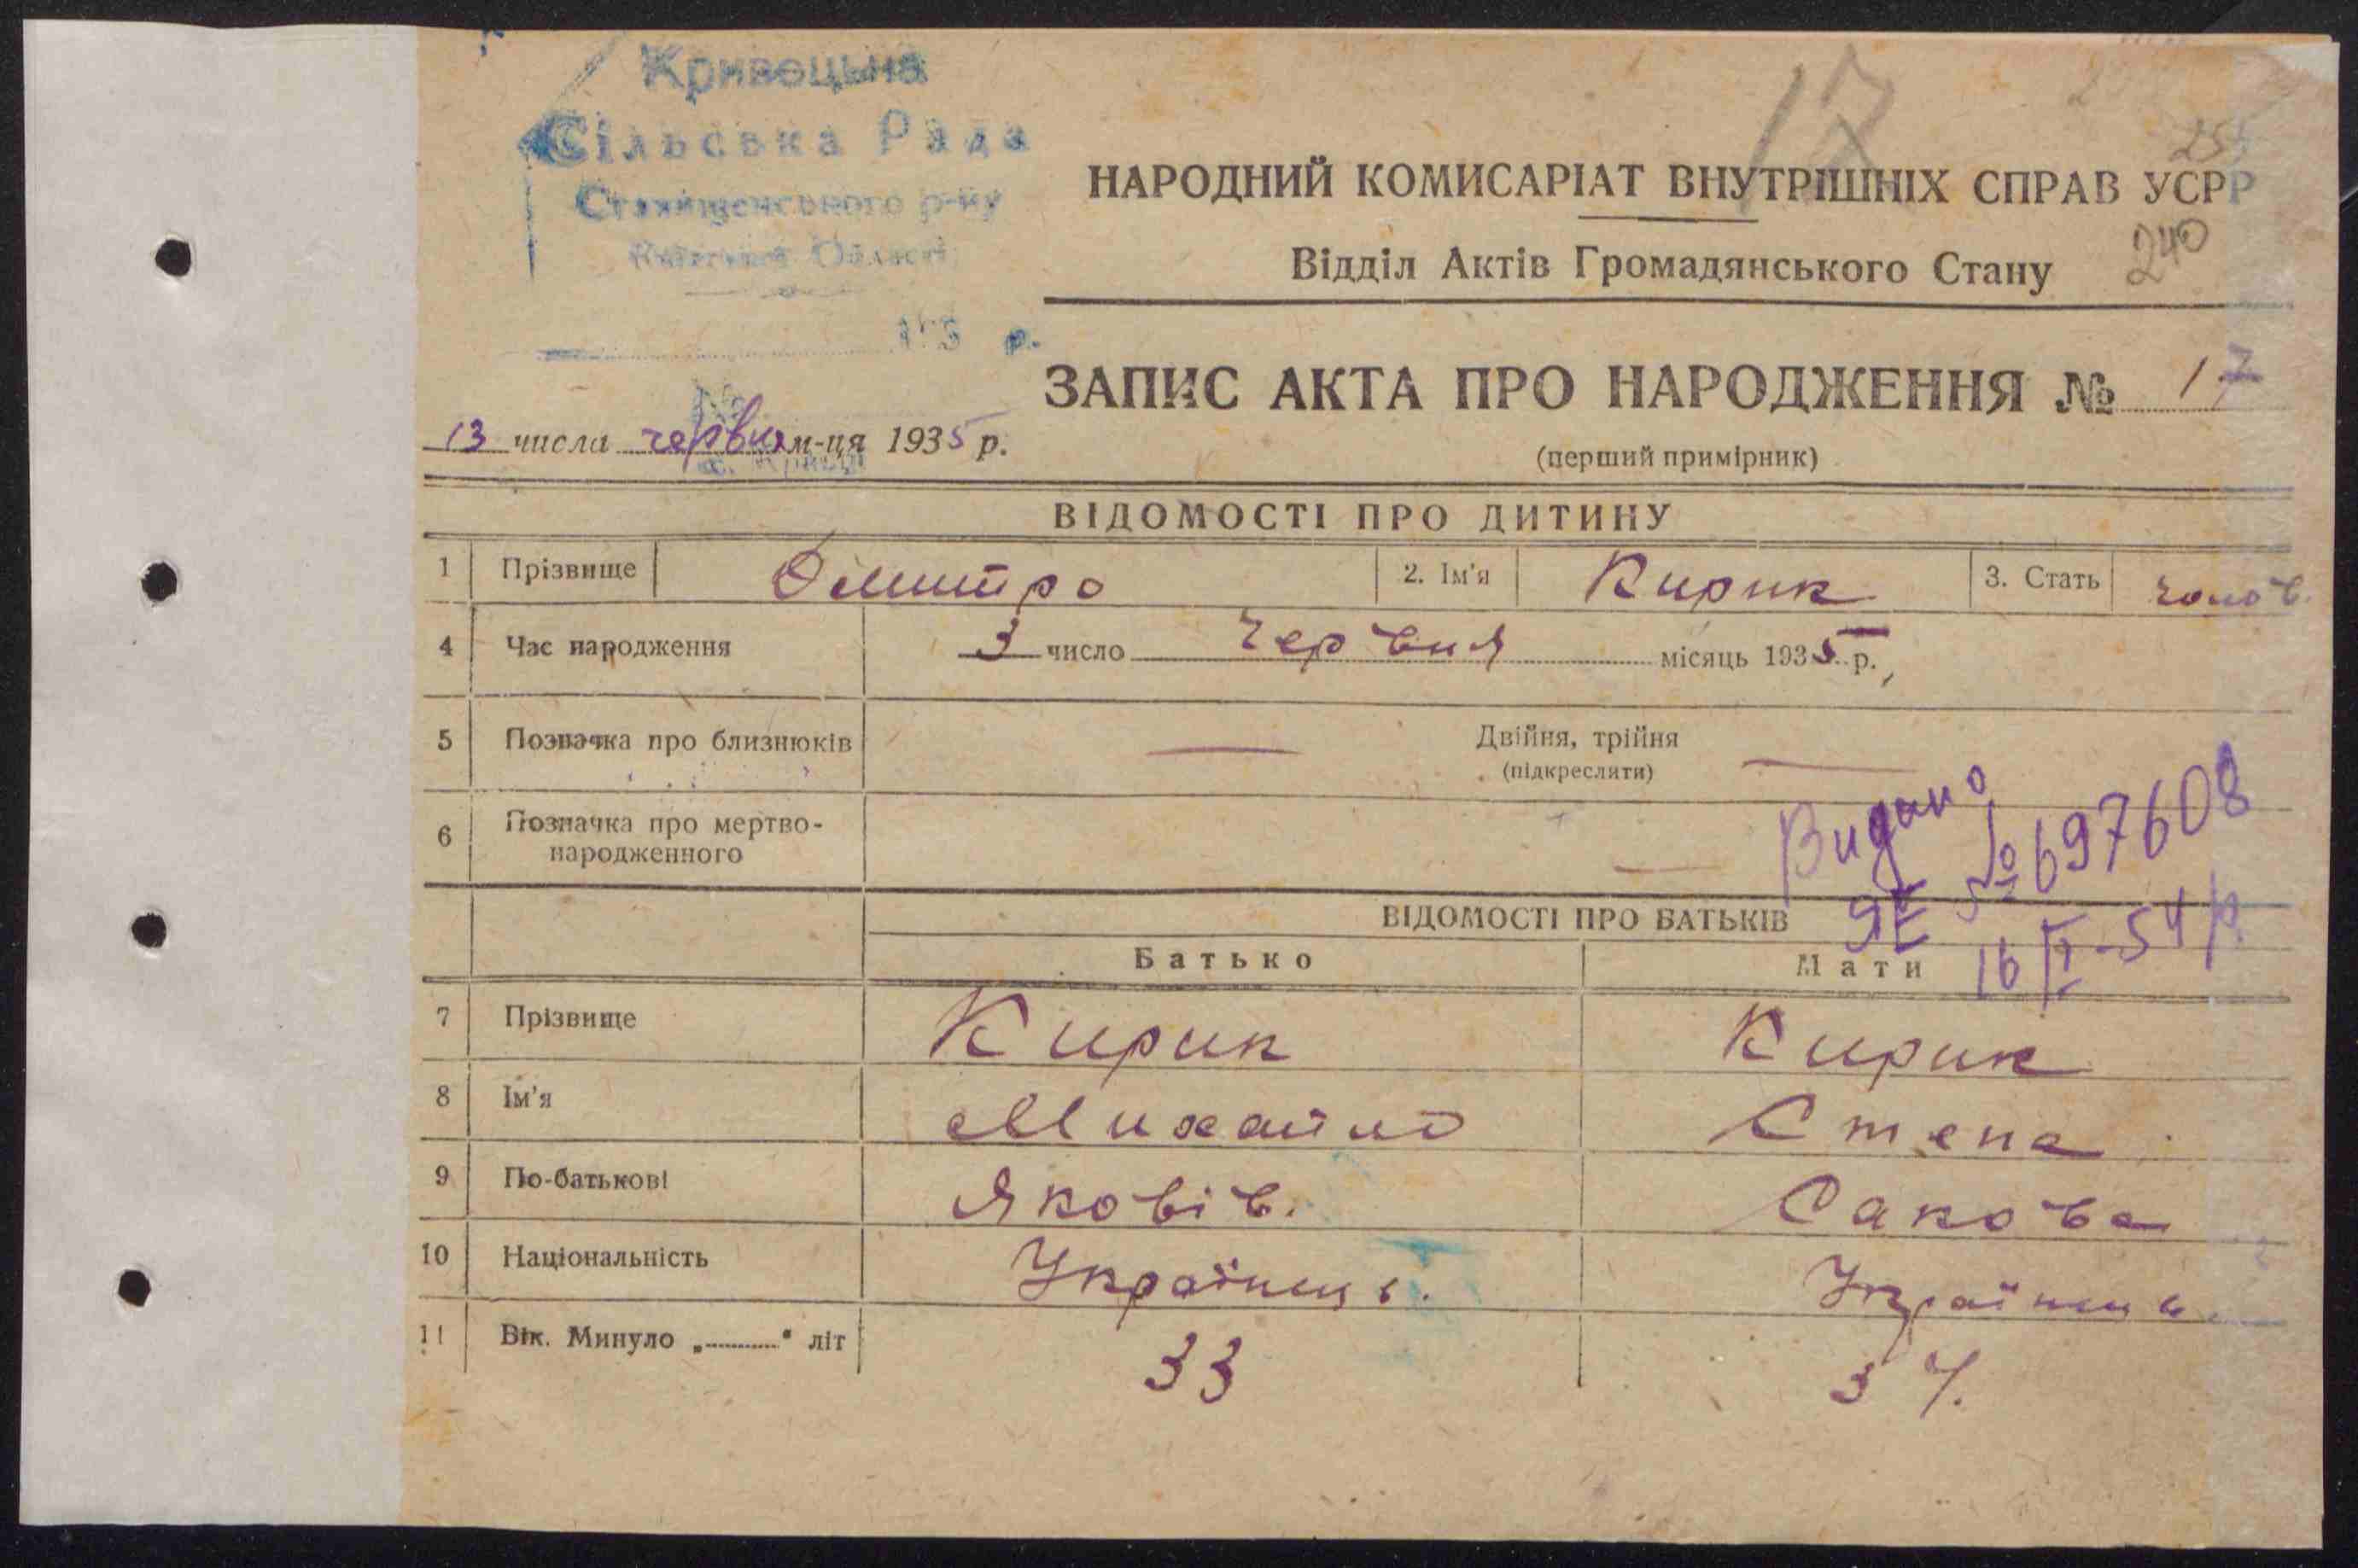 Кривецька
Сільська Рада
Ставищенського р-ну
Київської Області
193 р.
17
255
240
НАРОДНИЙ КОМИСАРІАТ ВНУТРІШНІХ СПРАВ УСРР
Відділ Актів Громадянського Стану
ЗАПИС АКТА ПРО НАРОДЖЕННЯ № 17
(перший примірник)
13 числа червня м-ця 1935 р.
ВІДОМОСТІ ПРО ДИТИНУ
1 Прізвище Дмитро 2. Ім'я Кирик 3. Стать чолов.
4 Час народження 3 число червня місяць 1935 р.
5 Позначка про близнюків — Двійня, трійня —
(підкреслити)
6 Позначка про мертво-
народженного —
Видано
ЯЕ № 697608
16/II-54 р.
ВІДОМОСТІ ПРО БАТЬКІВ
Батько Мати
7 Прізвище Кирик Кирик
8 Ім'я Михайло Степа
9 По-батькові Яковів. Сакова
10 Національність Українець. Українець.
11 Вік. Минуло „ " літ 33 37.